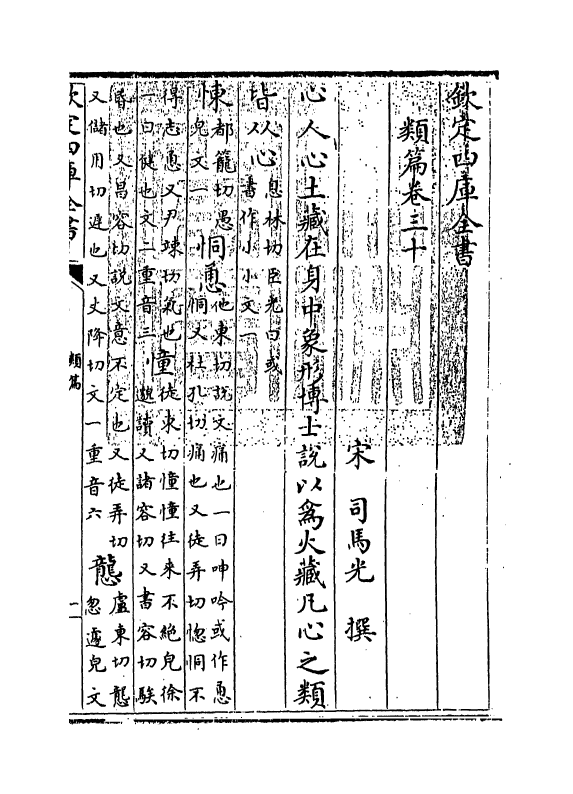 欽定四庫全書
類篇卷三十
宋 司馬光 撰
心人心土藏在身中象形博士說以為火藏凡心之類
皆从心息林切臣光曰或
書作小小文一
悚都籠切愚
皃文一恫恿他東切說文痛也一曰呻吟或作恿
恫又杜孔切痛也又徒弄切惚恫不
得志恿又尹竦切氣也憧徒東切憧憧往來不絶皃徐
一曰健也文二重音三邈讀又諸容切又書容切騃
昬也又昌容切說文意不定也又徒弄切
又儲用切遲也又丈降切文一重音六 㦕盧東切㦕
怱遽皃文
欽定四庫全書
類篇
一